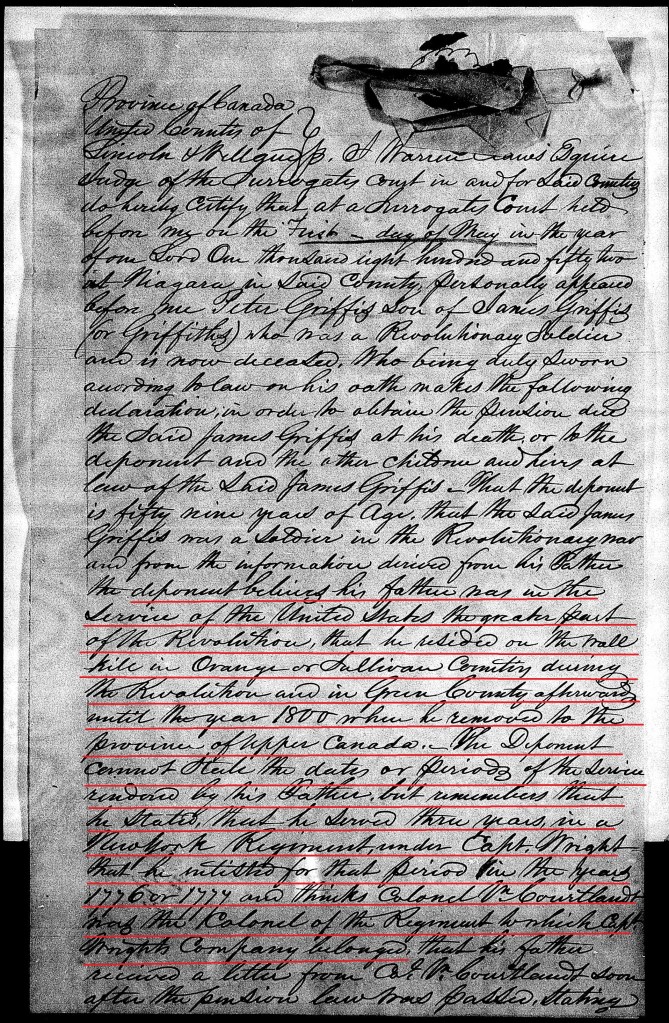 Province of Canada
United Counties of
Lincoln & Welland SS. I Warren Claus Esquire
Judge of the Surrogate Court in and for Said County
do hereby Certify that at a Surrogate Court held
before me on the First day of May in the year
of our Lord One thousand eight hundred and fifty two
at Niagara in Said County, Personally appeared
before me Peter Griffis Son of James Griffis
(or Griffiths) who was a Revolutionary Soldier
and is now deceased, Who being duly Sworn
according to law on his oath makes the following
declaration, in order to obtain the pension due
the Said James Griffis at his death or to the
deponent and the other children and heirs at
law of the Said James Griffis - That the deponent
is fifty nine years of Age, that the Said James
Griffis was a Soldier in the Revolutionary war
and from the information derived from his Father
the deponent believes his father was in the
Service of the United States the greater part
of the Revolution, that he resided on the wall
kill in Orange or Sullivan County during
the Revolution and in Green County afterwards
until the year 1800 when he removed to the
province of upper Canada. - The Deponent
cannot State the dates or periods of the Service
rendered by his Father, but remembers that
he Stated, that he Served three years, in a
New York Regiment under Capt. Wright
that he inlisted for that period in the years
1776 or 1777 and thinks Colonel Vn Courtlandt
was the Colonel of the Regiment to which Capt
Wrights Company belonged, that his father
received a letter from Col Vn Courtlandt soon
after the pension law was passed, stating